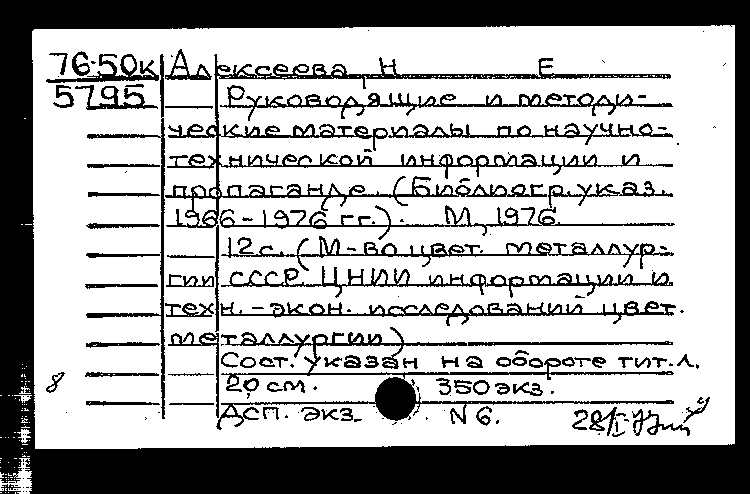 76-50к Алексеева, Н Е
5795 Руководящие и методи-
ческие материалы по научно-
технической информации и
пропаганде. (Библиогр. указ.
1966-1976 гг.). М., 1976.
12 с. (М-во цвет. металлур-
гии СССР. ЦНИИ информации и
техн.-экон. исследований цвет.
металлургии)
Сост. указан на обороте тит. л.
8 20 см. 350 экз.
ДСП. экз. N 6. 28/I-77